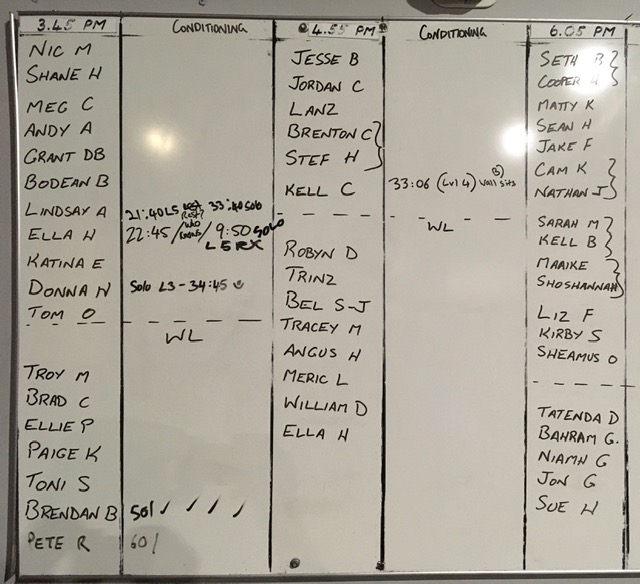 3.45 PM
CONDITIONING
NIC M
SHANE H
MEG C
ANDY A
GRANT DB
BODEAN B
LINDSAY A 21:40 L5 33:40 SOLO
ELLA H 22:45 / 9:50 SOLO
L5 RX
KATINA E
DONNA N SOLO L3 - 34:45
TOM O
WL
TROY M
BRAD C
ELLIE P
PAIGE K
TONI S
BRENDAN B 50/ ✓ ✓ ✓ ✓
PETE R 60/
4.55 PM
CONDITIONING
JESSE B
JORDAN C
LANZ
BRENTON C
STEF H
KELL C 33:06 (LVL 4) B) WALL SITS
WL
ROBYN D
TRINZ
BEL S-J
TRACEY M
ANGUS H
MERIC L
WILLIAM D
ELLA H
6.05 PM
SETH B
COOPER H
MATTY K
SEAN H
JAKE F
CAM K
NATHAN J
SARAH M
KELL B
MAAIKE
SHOSHANNAH
LIZ F
KIRBY S
SHEAMUS O
TATENDA D
BAHRAM G.
NIAMH G
JON G
SUE H